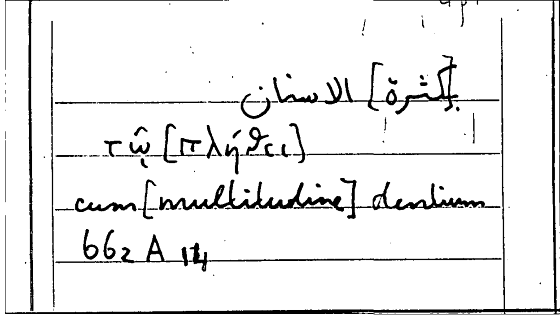 [بكثرة] الاسنان
τῷ [πλήθει]
cum [multitudine] dentium
662 A 14